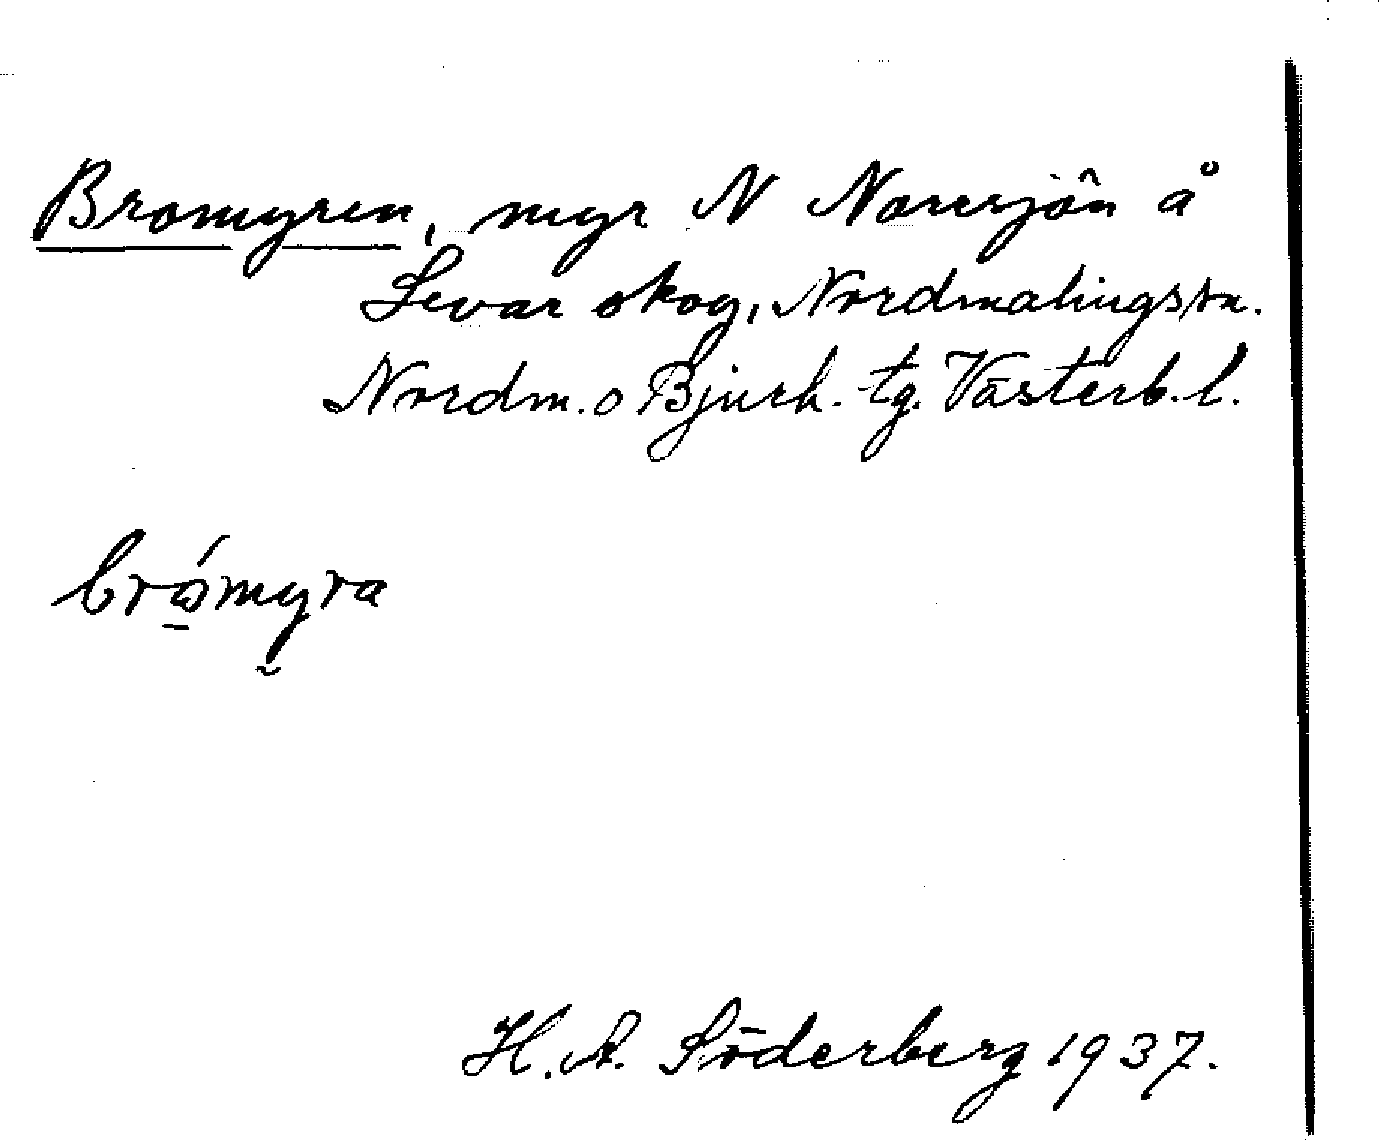 Bromyren, myr N Norrsjön å
Levar skog, Nordmalings sn.
Nordm. o Bjurh. tg. Västerb. l.
brømyra
H. A. Söderberg 1937.